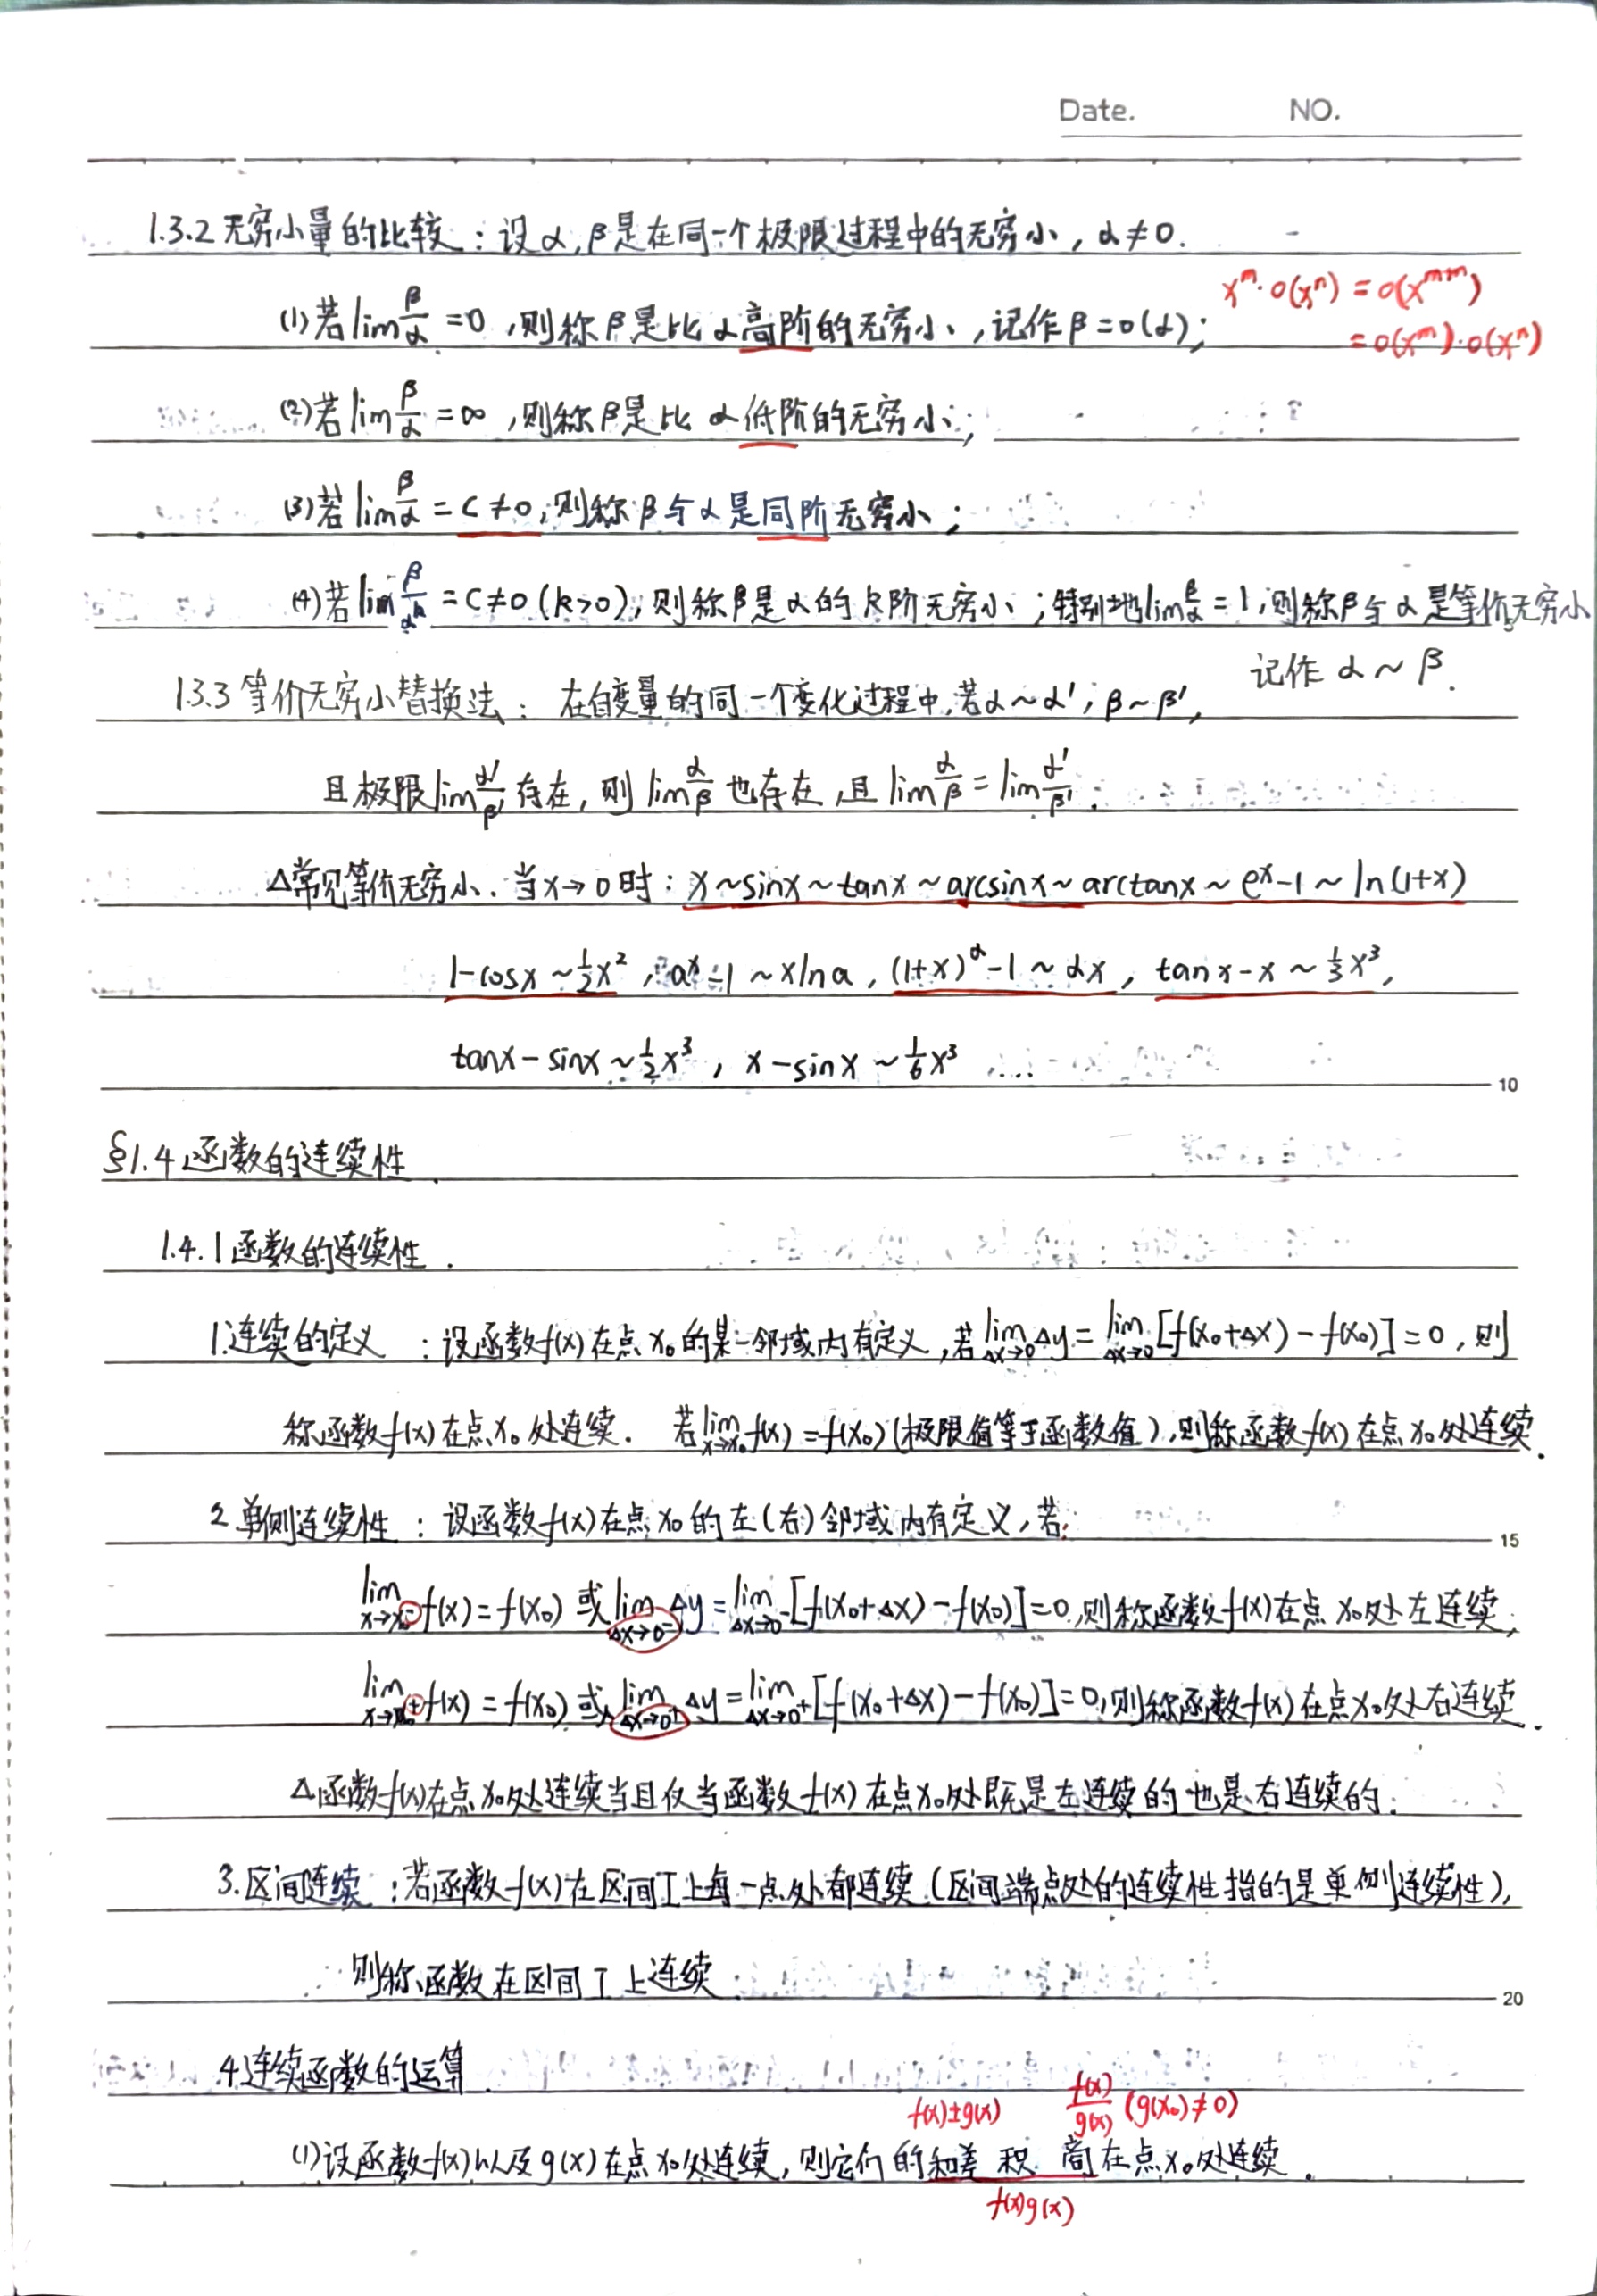 Date. NO.
1.3.2 无穷小量的比较：设α,β是在同一个极限过程中的无穷小，α≠0.
x^m·o(x^n)=o(x^{m+n})
(1)若lim β/α=0，则称β是比α高阶的无穷小，记作β=o(α);
=o(x^m)·o(x^n)
(2)若lim β/α=∞，则称β是比α低阶的无穷小;
(3)若lim β/α=C≠0，则称β与α是同阶无穷小;
(4)若lim β/α^k=C≠0(k>0)，则称β是α的k阶无穷小;特别地lim β/α=1，则称β与α是等价无穷小
记作α~β.
1.3.3 等价无穷小替换法：在自变量的同一个变化过程中，若α~α′，β~β′，
且极限lim α′/β′存在，则lim α/β也存在，且lim α/β=lim α′/β′.
△常见等价无穷小.当x→0时：x~sinx~tanx~arcsinx~arctanx~e^x-1~ln(1+x)
1-cosx~½x²，a^x-1~xlna，(1+x)^α-1~αx，tanx-x~⅓x³，
tanx-sinx~½x³，x-sinx~⅙x³ ....
10
§1.4 函数的连续性.
1.4.1 函数的连续性.
1.连续的定义：设函数f(x)在点x₀的某一邻域内有定义，若lim_{Δx→0}Δy=lim_{Δx→0}[f(x₀+Δx)-f(x₀)]=0，则
称函数f(x)在点x₀处连续. 若lim_{x→x₀}f(x)=f(x₀)(极限值等于函数值)，则称函数f(x)在点x₀处连续.
2.单侧连续性：设函数f(x)在点x₀的左(右)邻域内有定义，若:
15
lim_{x→x₀⁻}f(x)=f(x₀)或lim_{Δx→0⁻}Δy=lim_{Δx→0⁻}[f(x₀+Δx)-f(x₀)]=0，则称函数f(x)在点x₀处左连续;
lim_{x→x₀⁺}f(x)=f(x₀)或lim_{Δx→0⁺}Δy=lim_{Δx→0⁺}[f(x₀+Δx)-f(x₀)]=0，则称函数f(x)在点x₀处右连续.
△函数f(x)在点x₀处连续当且仅当函数f(x)在点x₀处既是左连续的也是右连续的.
3.区间连续：若函数f(x)在区间I上每一点处都连续(区间端点处的连续性指的是单侧连续性)，
则称函数在区间I上连续
20
4.连续函数的运算.
f(x)±g(x) f(x)/g(x) (g(x₀)≠0)
(1)设函数f(x)以及g(x)在点x₀处连续，则它们的和差 积 商在点x₀处连续.
f(x)g(x)